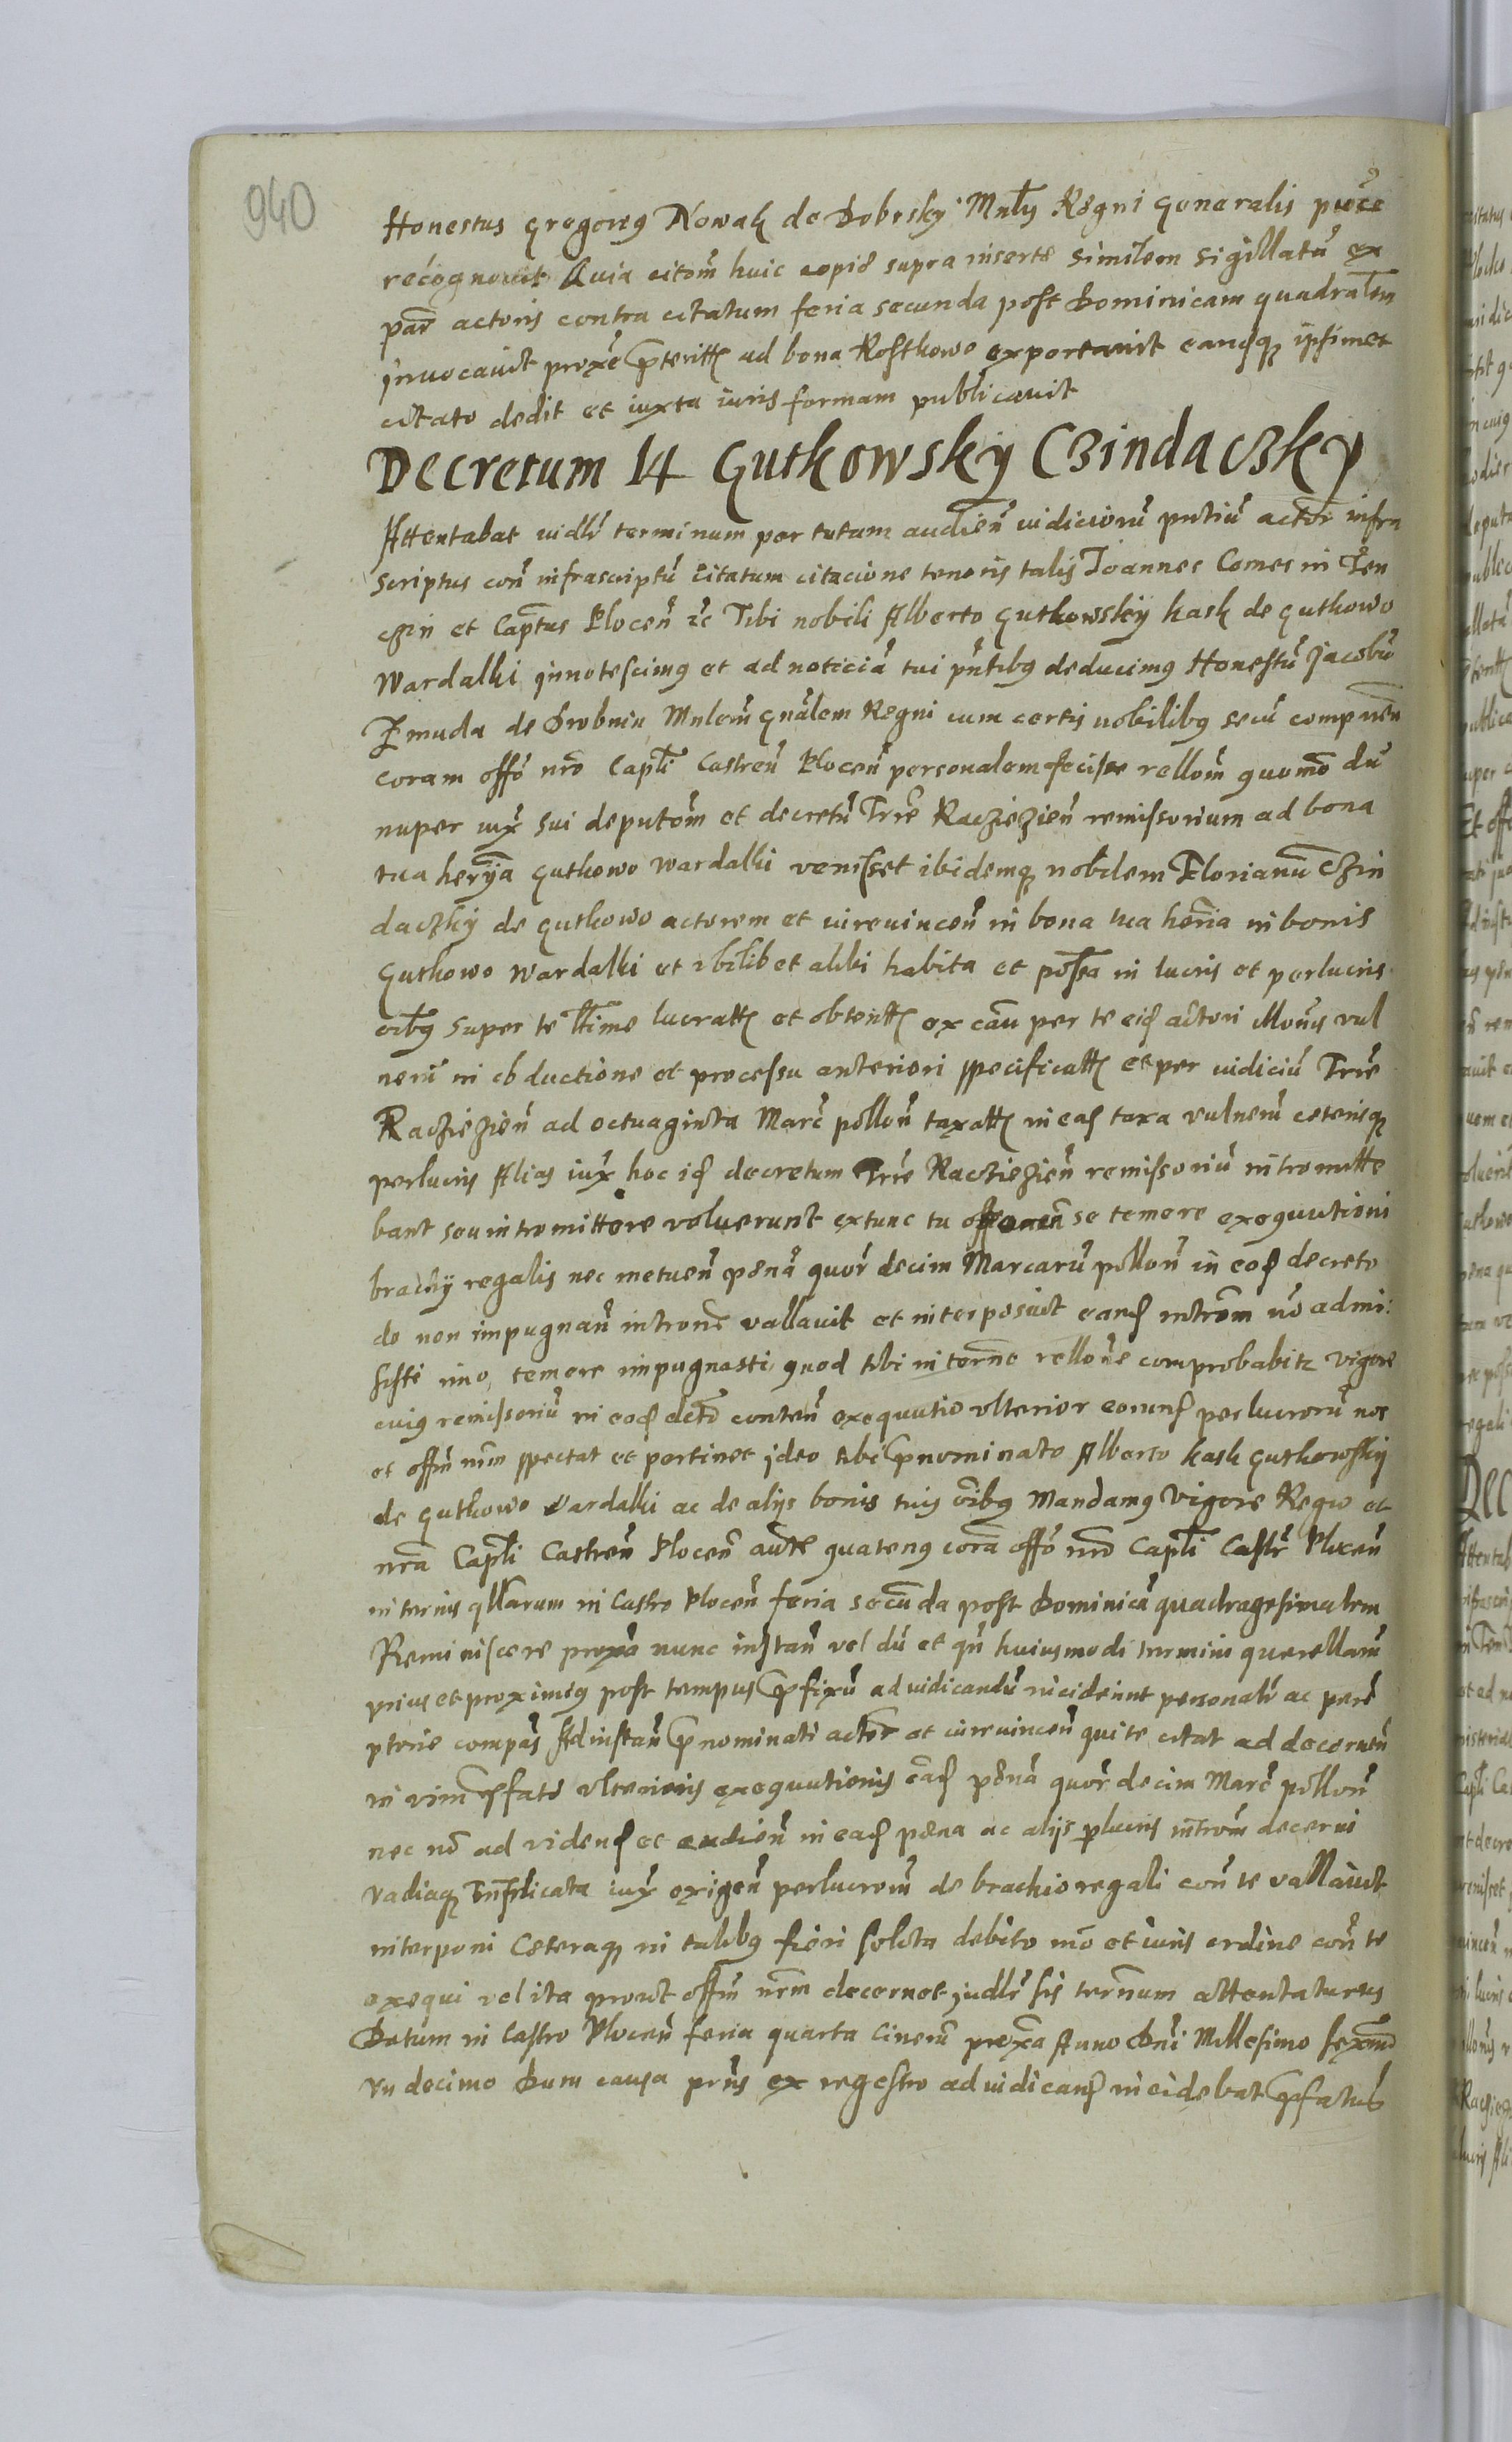 940
Honestus Gregorius Nowak de Dobrsky Mnlis Regni Generalis
recognouit Quia citom huic copie supra inserte similem sigillatu ex
par actoris contra citatum feria secunda post Dominicam quadralem
Inuocauit proxe pteritt ad bona Rosthowo exportauit eandque ipsimet
citato dedit et iuxta iuris formam publicauit
Decretum 14 Gutkowsky Czindaczky
Attentabat iudlr terminum per totam audien iudicioru pntiu actor infra
scriptus con infrascriptu citatum citacione tenoris talis Joannes Comes in Ten
czin et Captus Plocen zc Tibi nobili Alberto Gutkowsky kask de Gutkowo
Wardalki Innotescimus et ad noticia tui pntibus deducimus Honestu Jacobu
Zmuda de Drobnin Mnlem Gnalem Regni cum certis nobilibus secu
coram offo nro Capti Castren Plocen personalem fecisse rellom quomo du
nuper iux sui deputom et decretu Trre Racziezien remissorium ad bona
tua heria Gutkowo Wardalki venisset ibidemque nobilem Florianu Czin
daczky de Gutkowo actorem et iureuincen in bona tua heria in bonis
Gutkowo Wardalki et vbilibet alibi habita et possa in lucris et perlucris
oibus super te ltime lucratt et obtentt ex cau per te eid actori vul
neru in obductione et processu anteriori specificatt et per iudiciu Trre
Racziezien ad octuaginta Marc pollon taxatt in ead taxa vulneru ceterisque
perlucris Alias iux hoc id decretum Trre Racziezien remissoriu intromitte
bant seu intromittere voluerunt extunc tu se temere exequutioni
brachij regalis nec metuen pena quor decim Marcaru pollon in eod decreto
de non impugnan introne vallauit et interposuit eand introm no admi:
sisti imo temere impugnasti quod tibi in torne rellone comprobabitr vigore
cuius remissoriu in eod deto conten exequutio vlterior eorund perlucroru nos
et offm nrm spectat et pertinet ideo tibi pnominato Alberto kask Gutkowsky
de Gutkowo Vardalki ac de alijs bonis tuis oibus Mandamus Vigore Regio et
nra Capti Castren Plocen aute quatenus cora offo nro Capti Castr Plocen
in ternis qllarum in Castro Plocen feria secunda post Dominica quadragesimalem
Reminiscere proxa nunc instan vel du et qn huiusmodi termini querellaru
prius et proximius post tempus pfixu ad iudicandu inciderint personalr ac pere
ptorie compas Ad instan pnominati actor et iureuincen qui te citat ad decernen
in vim pfate vlterioris exequutionis ead pena quor decim Marc pollon
nec no ad vidend et audien in ead pena ac alijs plucris introm decerni
vadiaque iux exigen perlucrorum de brachio regali con te vallauit
interponi Ceteraque in talibus fieri solita debito mo et iuris ordine con te
exequi vel ita prout offm nrm decernet iudlr sis ternum attentaturus
Datum in Castro Plocen feria quarta Cineru proxa Anno Dni Millesimo sexcmo
Vndecimo Dum causa prns ex regestro ad iudicand incidebat pfatus